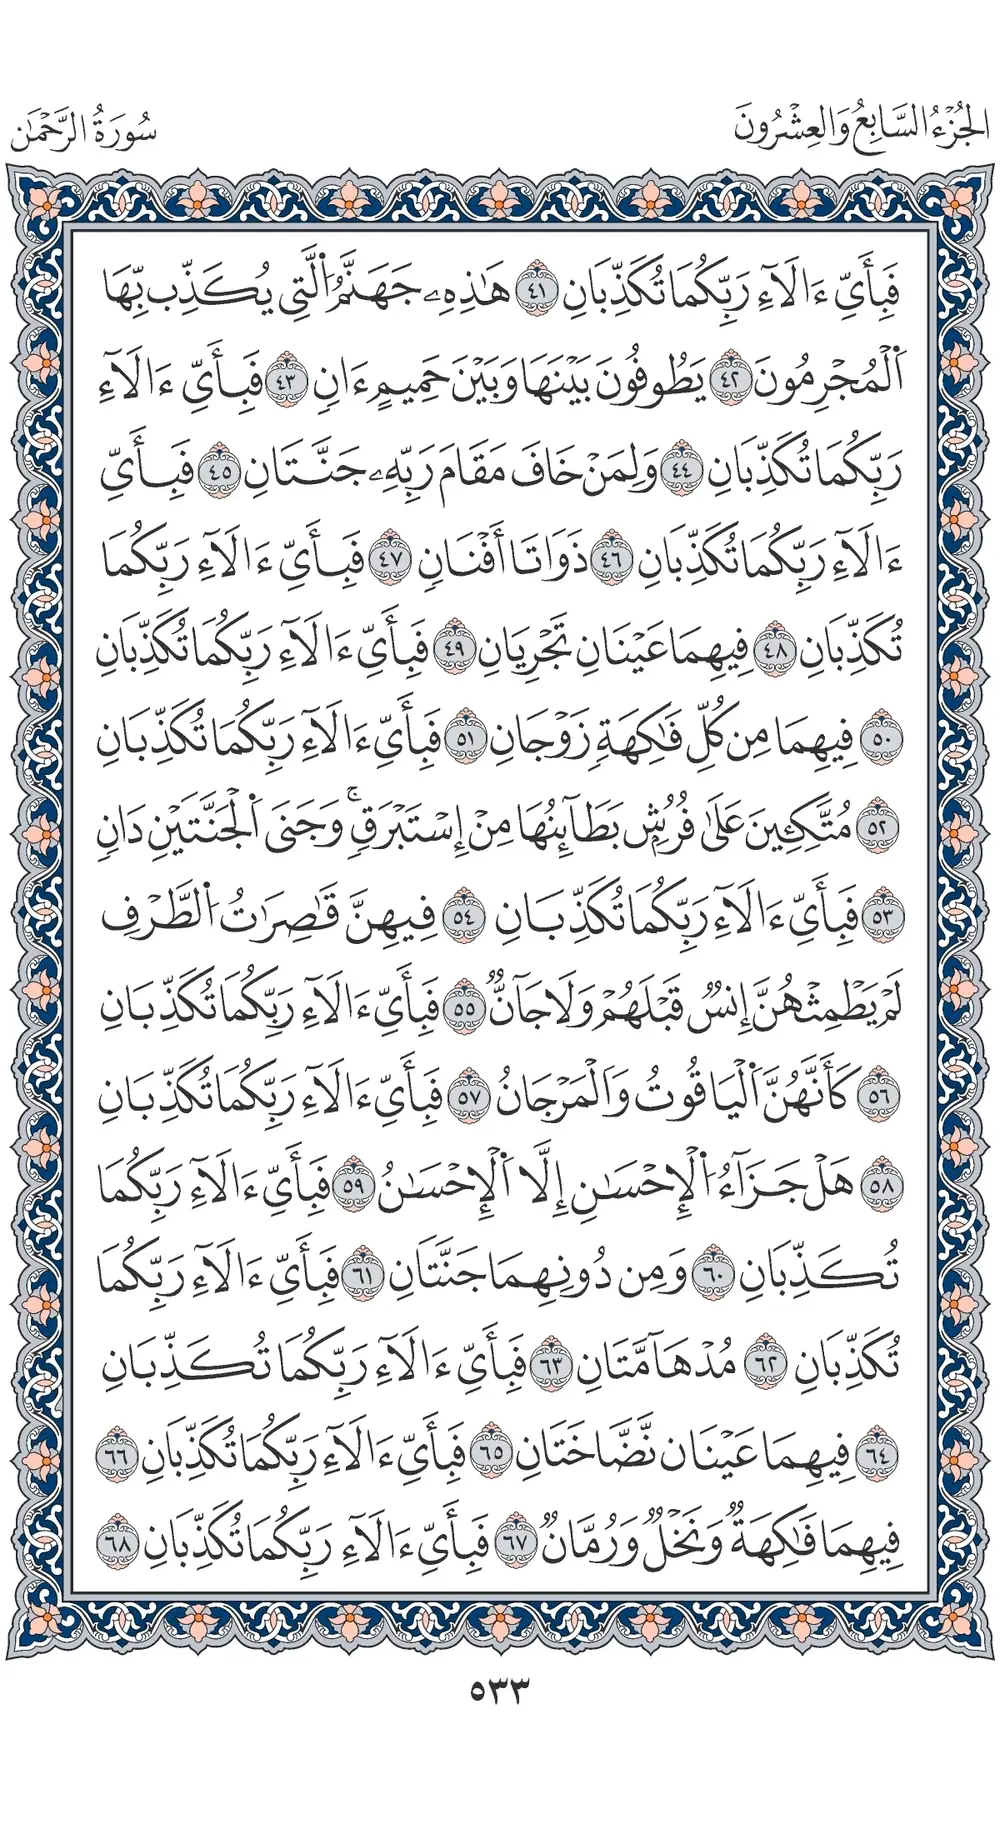 الجُزْءُ السَّابِعُ وَالعِشْرُونَ
سُورَةُ الرَّحْمَٰن
فَبِأَيِّ ءَالَآءِ رَبِّكُمَا تُكَذِّبَانِ ٤١ هَٰذِهِۦ جَهَنَّمُ اُ۬لَّتِي يُكَذِّبُ بِهَا
اَ۬لْمُجْرِمُونَ ٤٢ يَطُوفُونَ بَيْنَهَا وَبَيْنَ حَمِيمٍ ءَانٖ ٤٣ فَبِأَيِّ ءَالَآءِ
رَبِّكُمَا تُكَذِّبَانِ ٤٤ وَلِمَنْ خَافَ مَقَامَ رَبِّهِۦ جَنَّتَانِ ٤٥ فَبِأَيِّ
ءَالَآءِ رَبِّكُمَا تُكَذِّبَانِ ٤٦ ذَوَاتَا أَفْنَانٖ ٤٧ فَبِأَيِّ ءَالَآءِ رَبِّكُمَا
تُكَذِّبَانِ ٤٨ فِيهِمَا عَيْنَانِ تَجْرِيَانِ ٤٩ فَبِأَيِّ ءَالَآءِ رَبِّكُمَا تُكَذِّبَانِ
٥٠ فِيهِمَا مِن كُلِّ فَٰكِهَةٖ زَوْجَانِ ٥١ فَبِأَيِّ ءَالَآءِ رَبِّكُمَا تُكَذِّبَانِ
٥٢ مُتَّكِـِٔينَ عَلَىٰ فُرُشِۭ بَطَآئِنُهَا مِنْ إِسْتَبْرَقٖۚ وَجَنَى اَ۬لْجَنَّتَيْنِ دَانٖ
٥٣ فَبِأَيِّ ءَالَآءِ رَبِّكُمَا تُكَذِّبَانِ ٥٤ فِيهِنَّ قَٰصِرَٰتُ اُ۬لطَّرْفِ
لَمْ يَطْمِثْهُنَّ إِنسٞ قَبْلَهُمْ وَلَا جَآنّٞ ٥٥ فَبِأَيِّ ءَالَآءِ رَبِّكُمَا تُكَذِّبَانِ
٥٦ كَأَنَّهُنَّ اَ۬لْيَاقُوتُ وَالْمَرْجَانُ ٥٧ فَبِأَيِّ ءَالَآءِ رَبِّكُمَا تُكَذِّبَانِ
٥٨ هَلْ جَزَآءُ اُ۬لْإِحْسَٰنِ إِلَّا اَ۬لْإِحْسَٰنُ ٥٩ فَبِأَيِّ ءَالَآءِ رَبِّكُمَا
تُكَذِّبَانِ ٦٠ وَمِن دُونِهِمَا جَنَّتَانِ ٦١ فَبِأَيِّ ءَالَآءِ رَبِّكُمَا
تُكَذِّبَانِ ٦٢ مُدْهَآمَّتَانِ ٦٣ فَبِأَيِّ ءَالَآءِ رَبِّكُمَا تُكَذِّبَانِ
٦٤ فِيهِمَا عَيْنَانِ نَضَّاخَتَانِ ٦٥ فَبِأَيِّ ءَالَآءِ رَبِّكُمَا تُكَذِّبَانِ ٦٦
فِيهِمَا فَٰكِهَةٞ وَنَخْلٞ وَرُمَّانٞ ٦٧ فَبِأَيِّ ءَالَآءِ رَبِّكُمَا تُكَذِّبَانِ ٦٨
٥٣٣